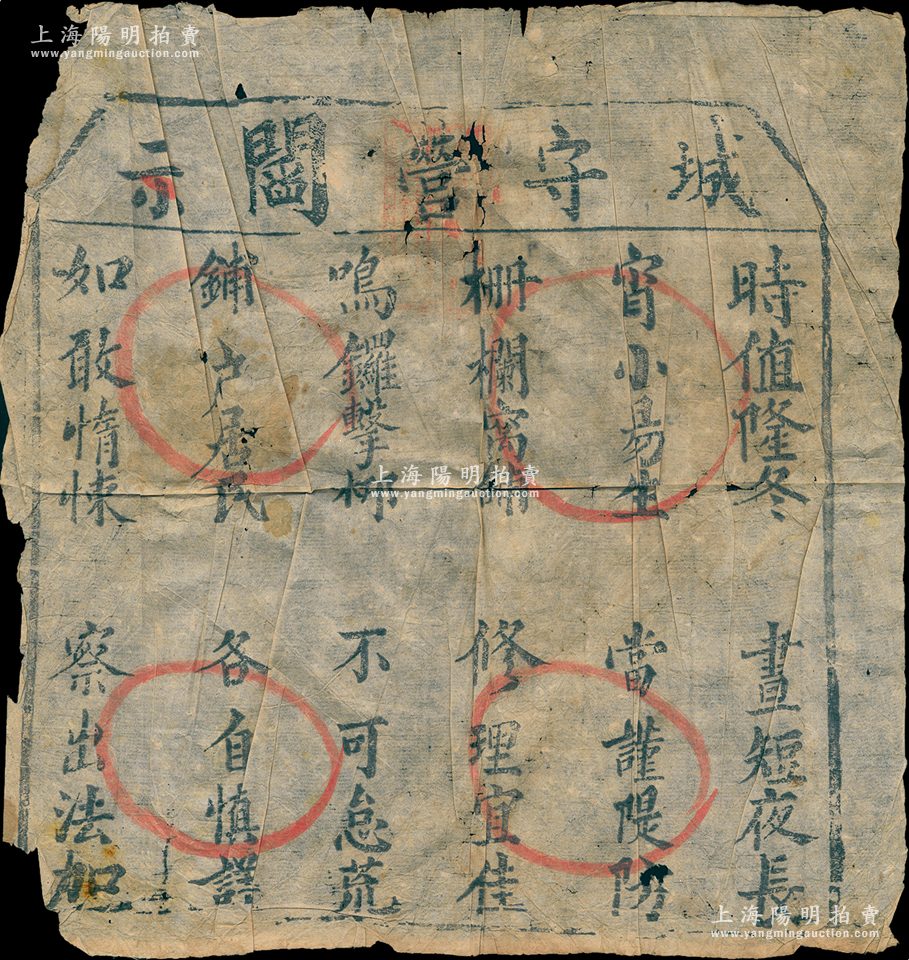 上海陽明拍賣
www.yangmingauction.com
城守營閻示
時值隆冬 晝短夜長
宵小易生 當謹隄防
柵欄窩鋪 修理宜佳
鳴鑼擊柝 不可怠荒
鋪户居民 各自慎
如敢惰悚 察出法加
上海陽明拍賣
www.yangmingauction.com
上海陽明拍賣
www.yangmingauction.com